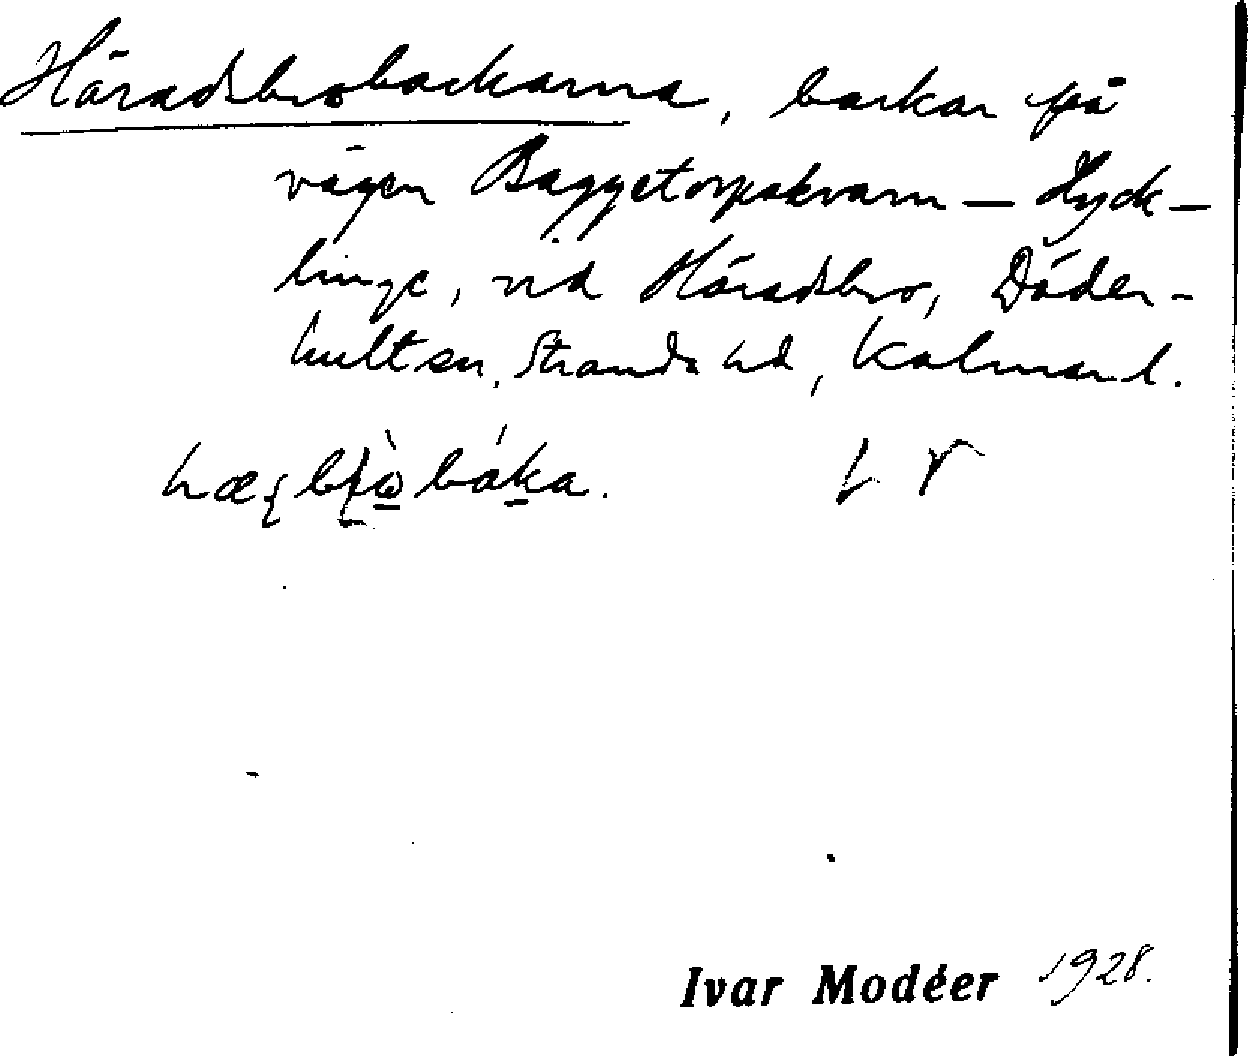 Häradsbrobackarna, backar på
vägen Baggetorpskvarn – Hyck-
linge, vid Häradsbro, Döder-
hult sn, Stranda hd, Kalmar l.
Ivar Modéer 1928.